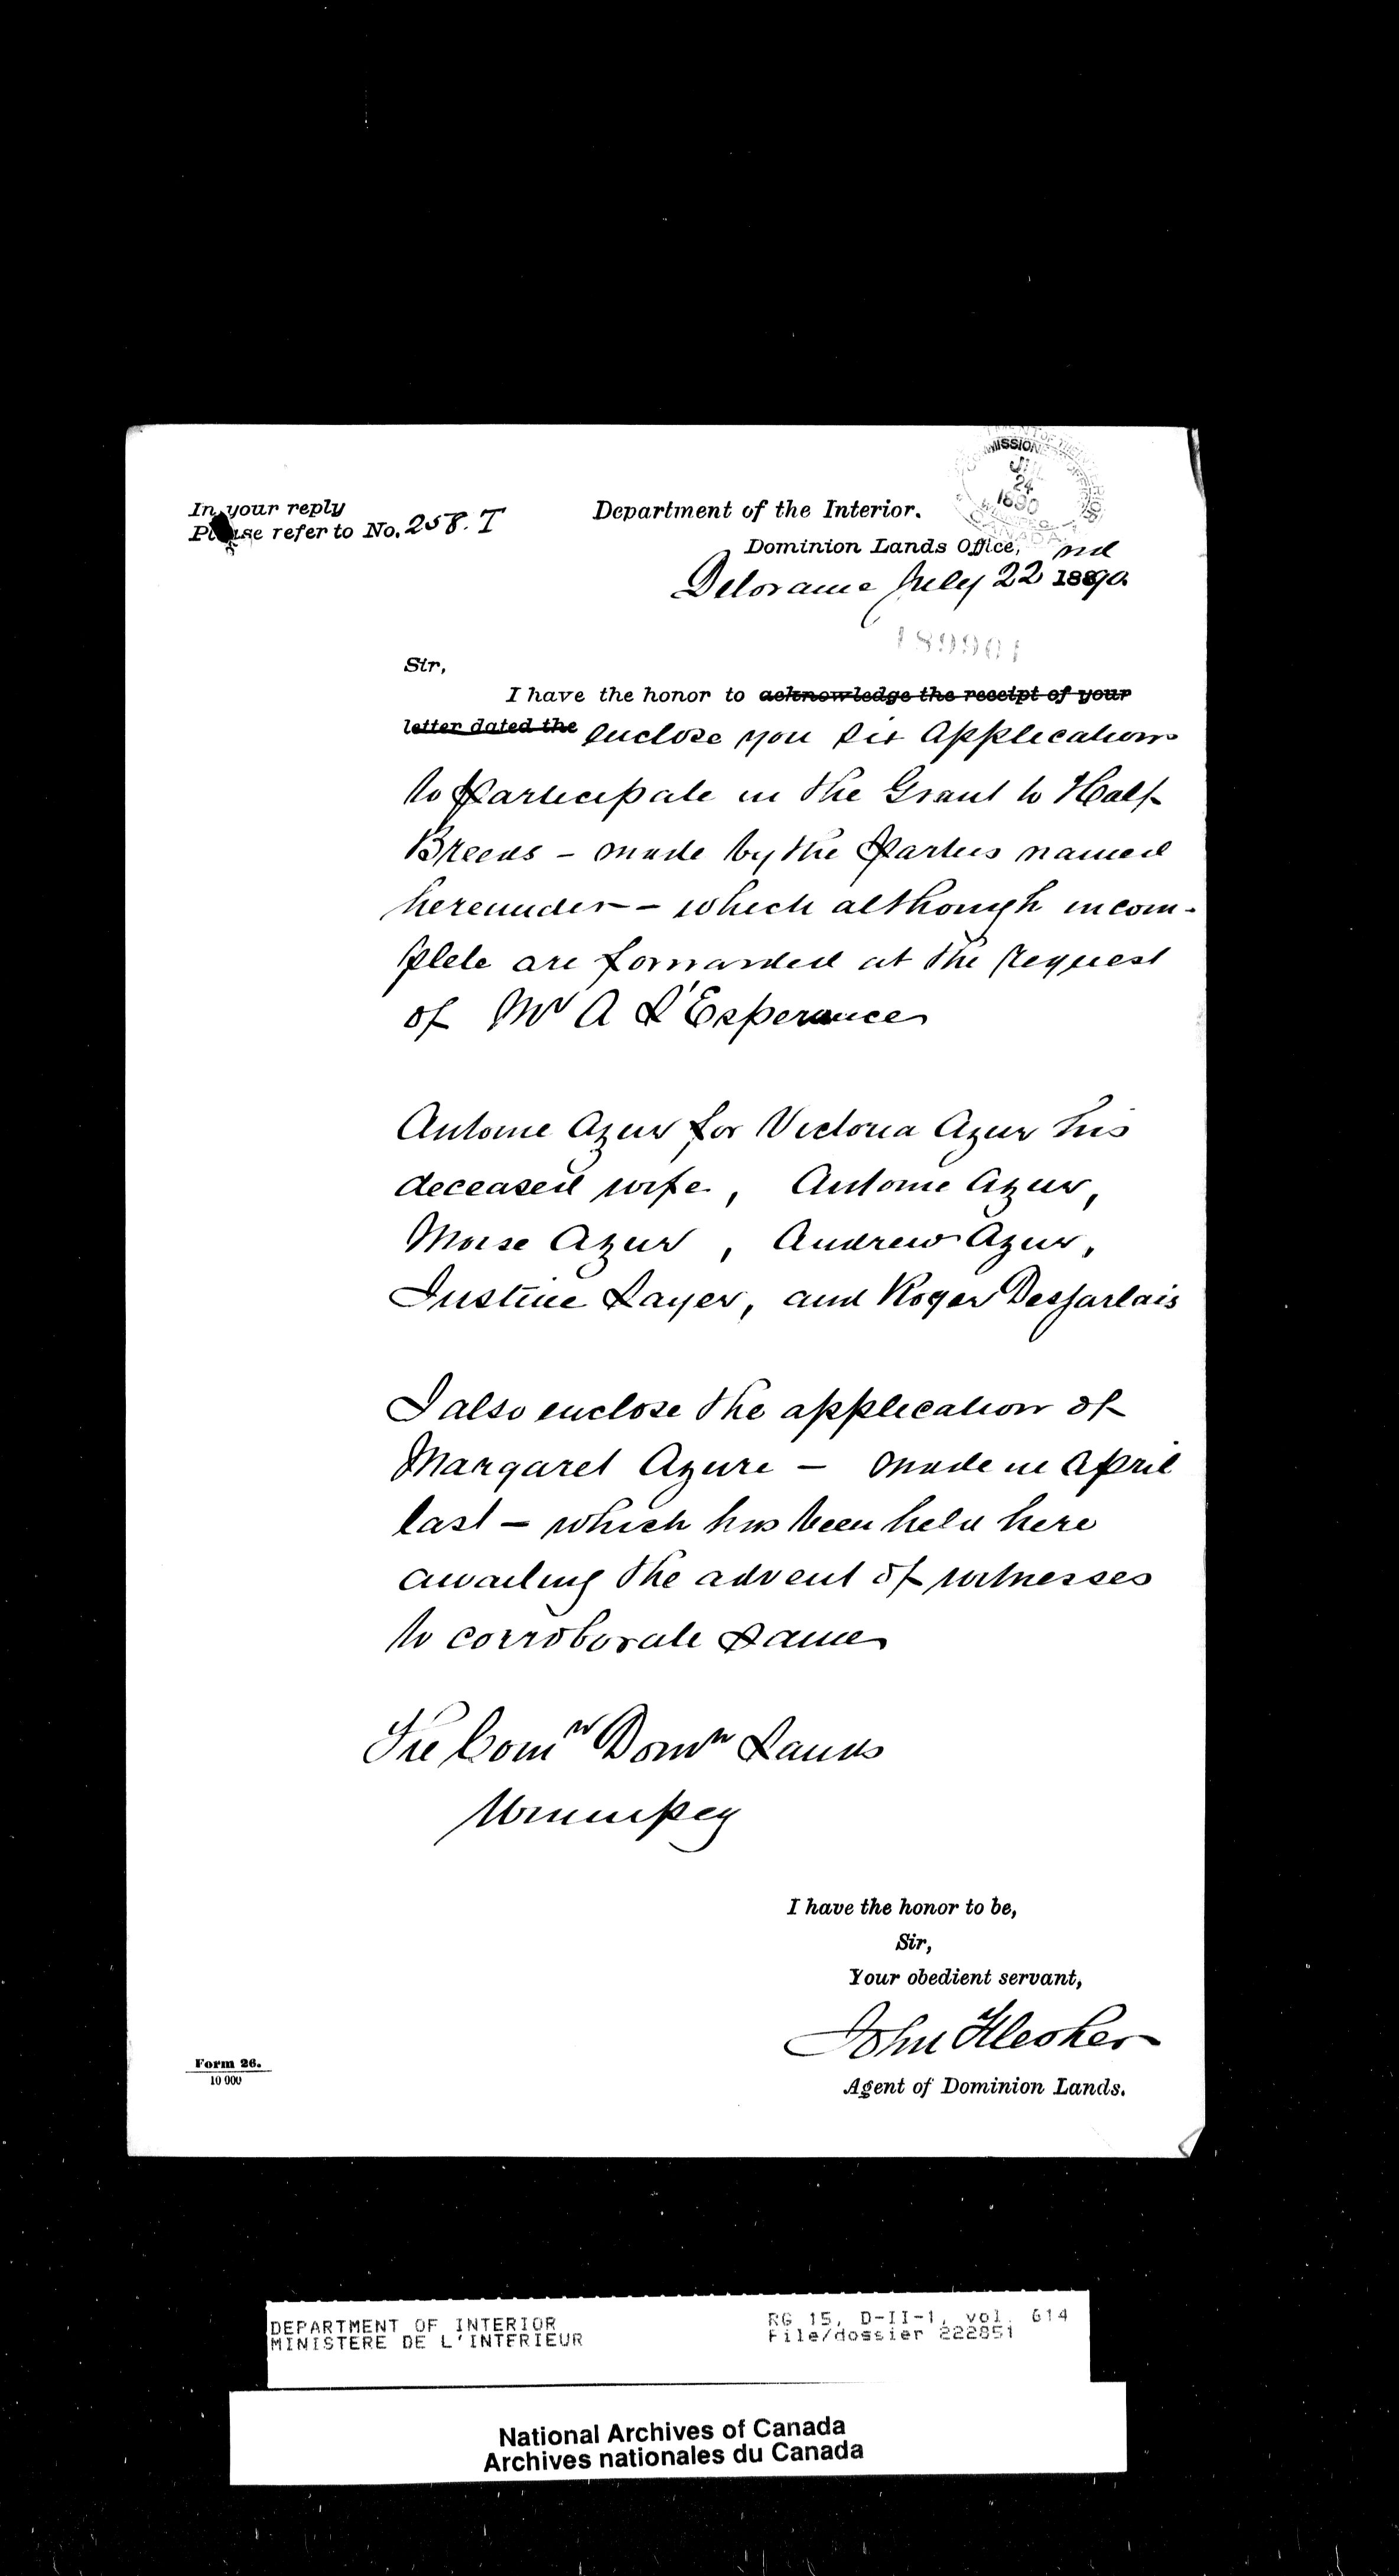 In your reply
Please refer to No. 258. T
Department of the Interior.
MISSION
24
1890
Dominion Lands Office,
Deloraine July 22nd 1890
189901
Sir,
I have the honor to acknowledge the receipt of your
letter dated the enclose you six applications
to participate in the Grant to Half
Breeds - made by the parties named
hereunder - which although incom-
plete are forwarded at the request
of Mr A L'Esperance
Antoine Azur for Victoria Azur his
deceased wife, Antoine Azur,
Moise Azur, Andrew Azur,
Justine Layer, and Roger Desjarlais
I also enclose the application of
Margaret Azure - made in April
last - which has been held here
awaiting the advent of witnesses
to corroborate same
The Comr Domn Lands
Winnipeg
I have the honor to be,
Sir,
Your obedient servant,
John Flesher
Agent of Dominion Lands.
Form 26.
10 000
DEPARTMENT OF INTERIOR
MINISTERE DE L'INTERIEUR
RG 15, D-II-1, vol. 614
File/dossier 222851
National Archives of Canada
Archives nationales du Canada